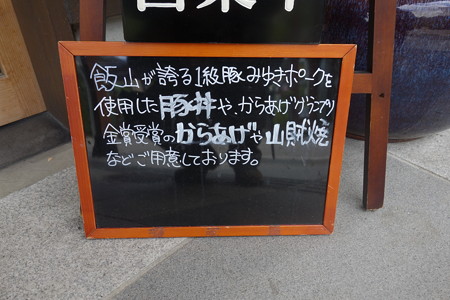 営業中
飯山が誇る1級豚みゆきポークを
使用した豚丼や、からあげグランプリ
金賞受賞のからあげや山賊焼
などご用意しております。